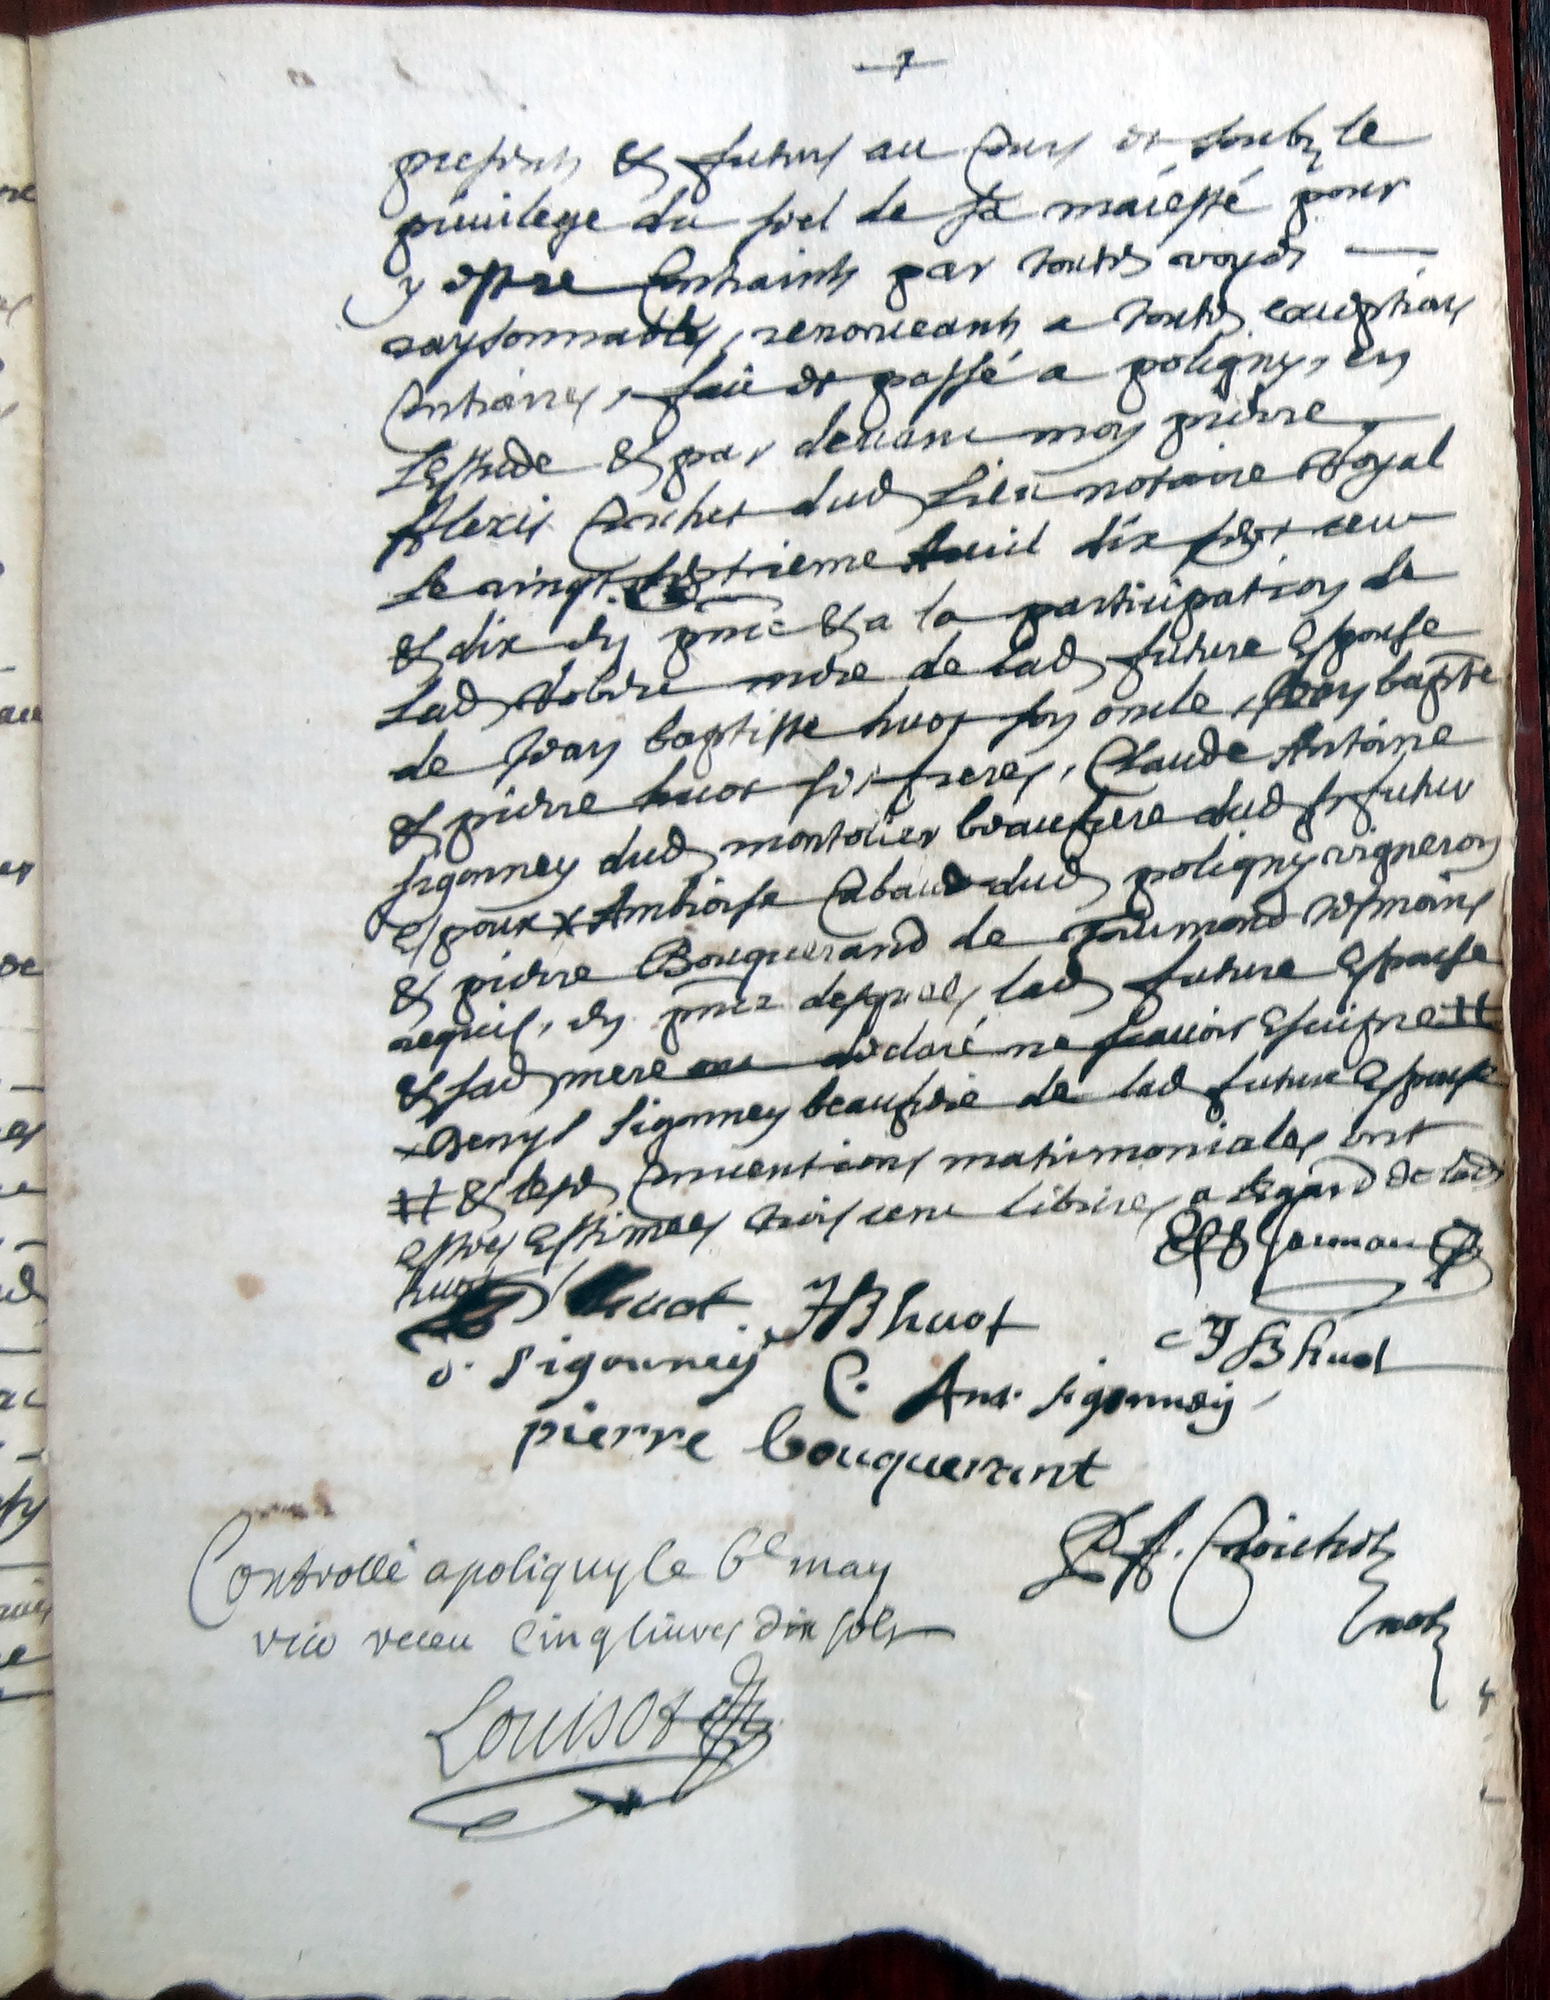 7
presents & futurs au Cours et soubz le
privilege du scel de sa maiesté pour
y estre Contraints par toutes voyes
raysonnables, renonceants a toutes exceptions
Contraires, faict et passé a poligny, en
Lestude & par devant moy pierre
Alexis dud lieu notaire Royal
le vingt Avril dix sept cent
& dix en & a la participation de
Lad mere de lad future Espouse
de Jean baptiste huot son oncle, Jean baptste
& pierre huot ses freres, Claude Antoine
sigonney dud montolier beaufrere dud sr futur
Espoux x Ambroise dud poligny vigneron
& pierre Bouquerand de tesmoins
requis, en desquels lad future Espouse
& sad mere ont declaré ne scavoir Escripre #
x Denys sigonney beaufrere de lad future Espouse
# & lesd Conventions matrimoniales ont
estées Estimées trois cent libvres a lesgard de lad
huot
huot JB huot J B huot
d. sigonney C. Ant. sigonney
pierre bouquerant
Controllé a poligny le 6e may
receu cinq livres dix sols
not
Louisot